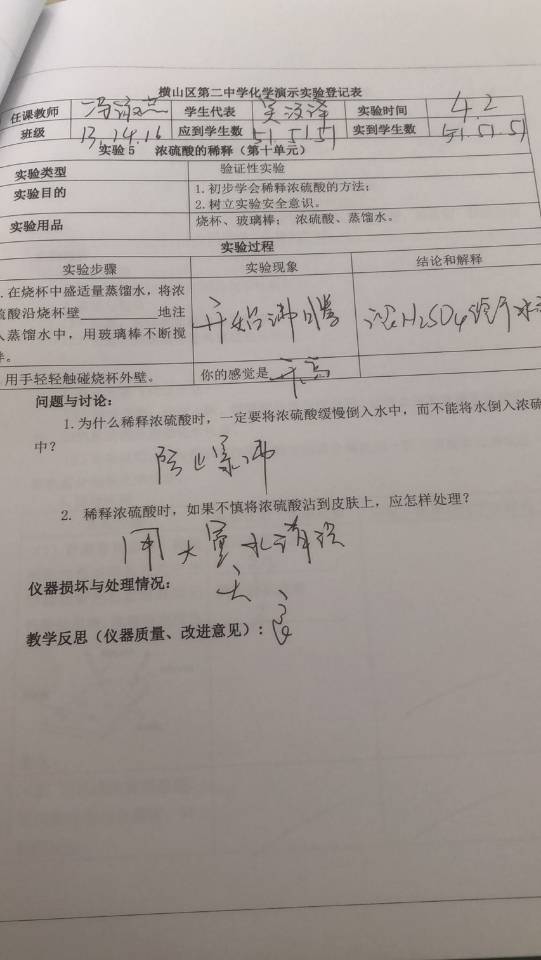 横山区第二中学化学演示实验登记表
任课教师 学生代表 吴汉泽 实验时间 4.2
班级 13.14.16 应到学生数 51.51.51 实到学生数 51.51.51
实验5 浓硫酸的稀释（第十单元）
实验类型 验证性实验
实验目的 1.初步学会稀释浓硫酸的方法；
2.树立实验安全意识。
实验用品 烧杯、玻璃棒； 浓硫酸、蒸馏水。
实验过程
实验步骤 实验现象 结论和解释
.在烧杯中盛适量蒸馏水，将浓
硫酸沿烧杯壁__________地注
入蒸馏水中，用玻璃棒不断搅
拌。
开始沸腾 浓H2SO4
用手轻轻触碰烧杯外壁。 你的感觉是
问题与讨论：
1.为什么稀释浓硫酸时，一定要将浓硫酸缓慢倒入水中，而不能将水倒入浓硫
中？
防止暴沸
2. 稀释浓硫酸时，如果不慎将浓硫酸沾到皮肤上，应怎样处理？
用大量水清洗
仪器损坏与处理情况：
无
教学反思（仪器质量、改进意见）：